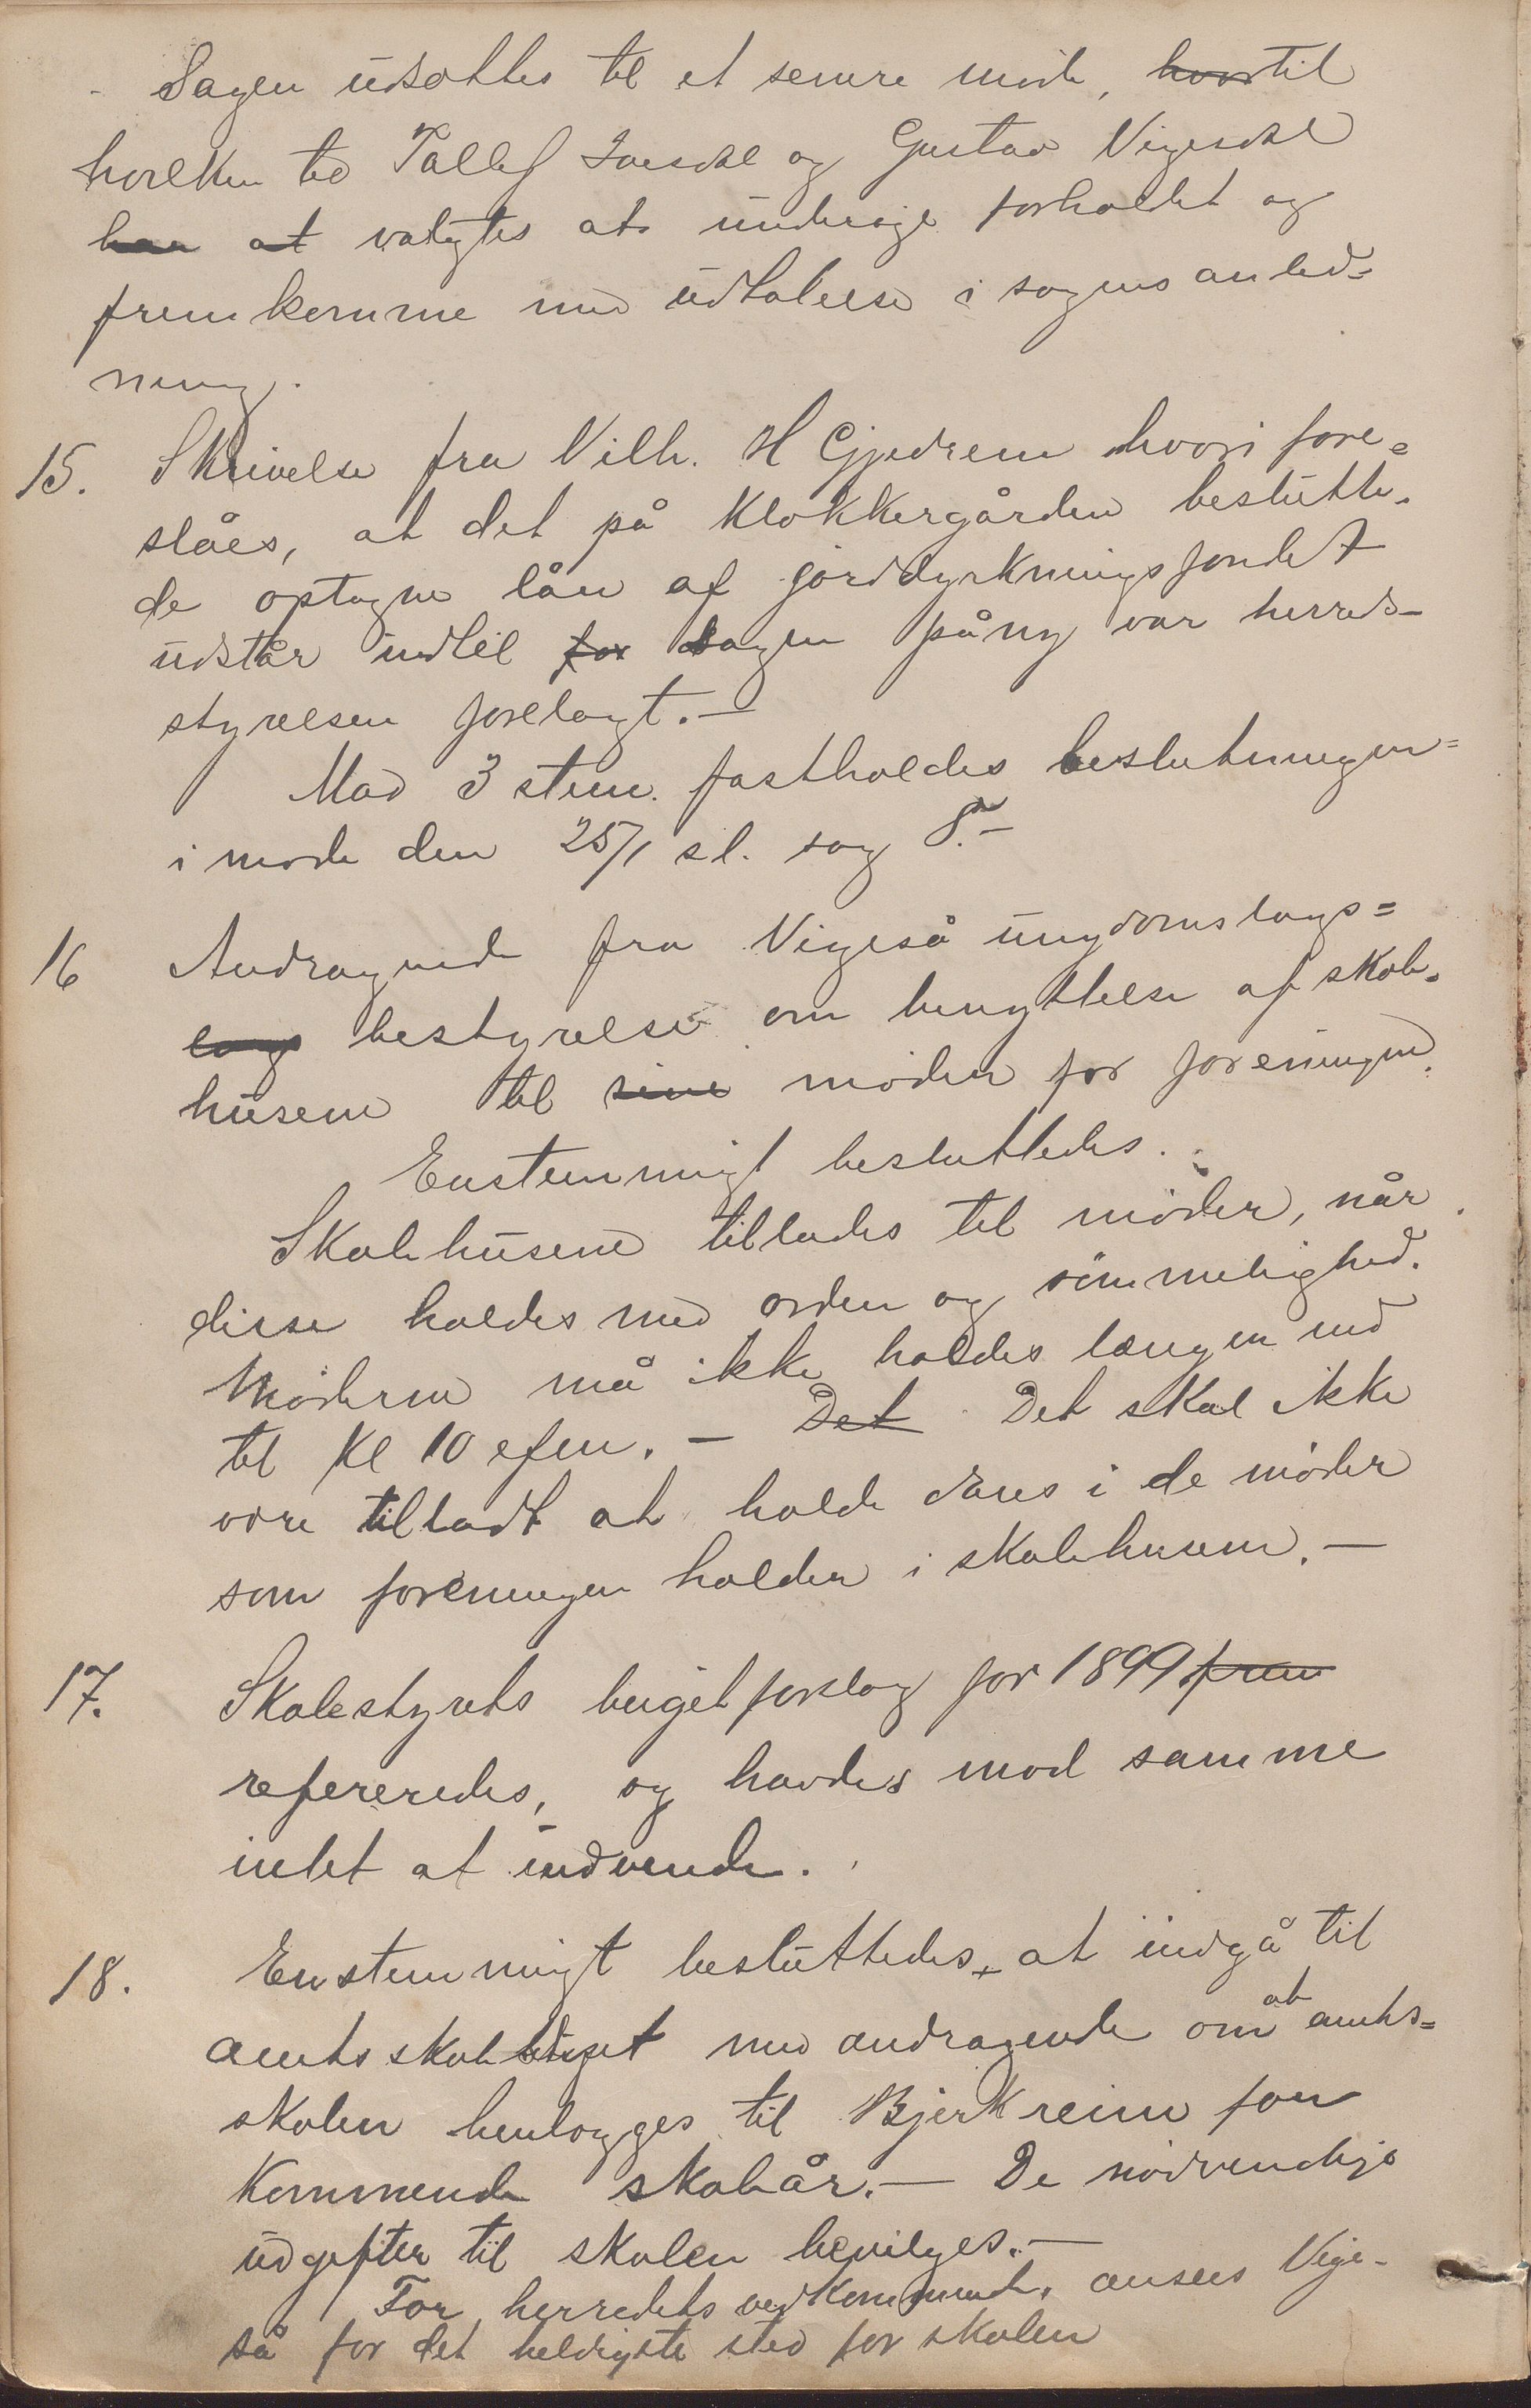 Sagen udsættes til et senere møde, hvortil
hvilken tid Tallef Ivesdal og Gustav Vigesdal
har at valgtes at undersøge forholdet og
fremkomme med udtalelse i sagens anled-
ning.
15. Skrivelse fra Vilh. H Gjedrem hvori fore-
slåes, at det på Klokkergården beslutte-
de optagne lån af jorddyrkningsfondet
udstår indtil for sagen påny var herreds-
styrelsen forelagt.—
Mod 3 stem. fastholdes beslutningen
i møde den 25/1 sl. sag 8.—
16 Andragende fra Vigeså ungdomslags=
lags bestyrelse om benyttelse af skole-
husene til sine møder for foreningen.
Enstemmigt besluttedes.
Skolehusene tillades til møder, når
disse holdes med orden og sømmelighed.
Møderne må ikke holdes længer end
til Kl 10 efm. — Det Det skal ikke
være tilladt at holde dans i de møder
som foreningen holder i skolehusene.—
17. Skolestyrets budgetforslag for 1899 frem
refereredes, og havdes mod samme
intet at indvende.
18. Enstemmigt besluttedes, at indgå til
amtsskole med andragende om at amts=
skolen henlægges til Bjerkreim for
kommende skoleår.— De nødvendige
udgifter til skolen bevilges.—
For herredets vedkommende, ansees Vige-
så for det heldigste sted for skolen